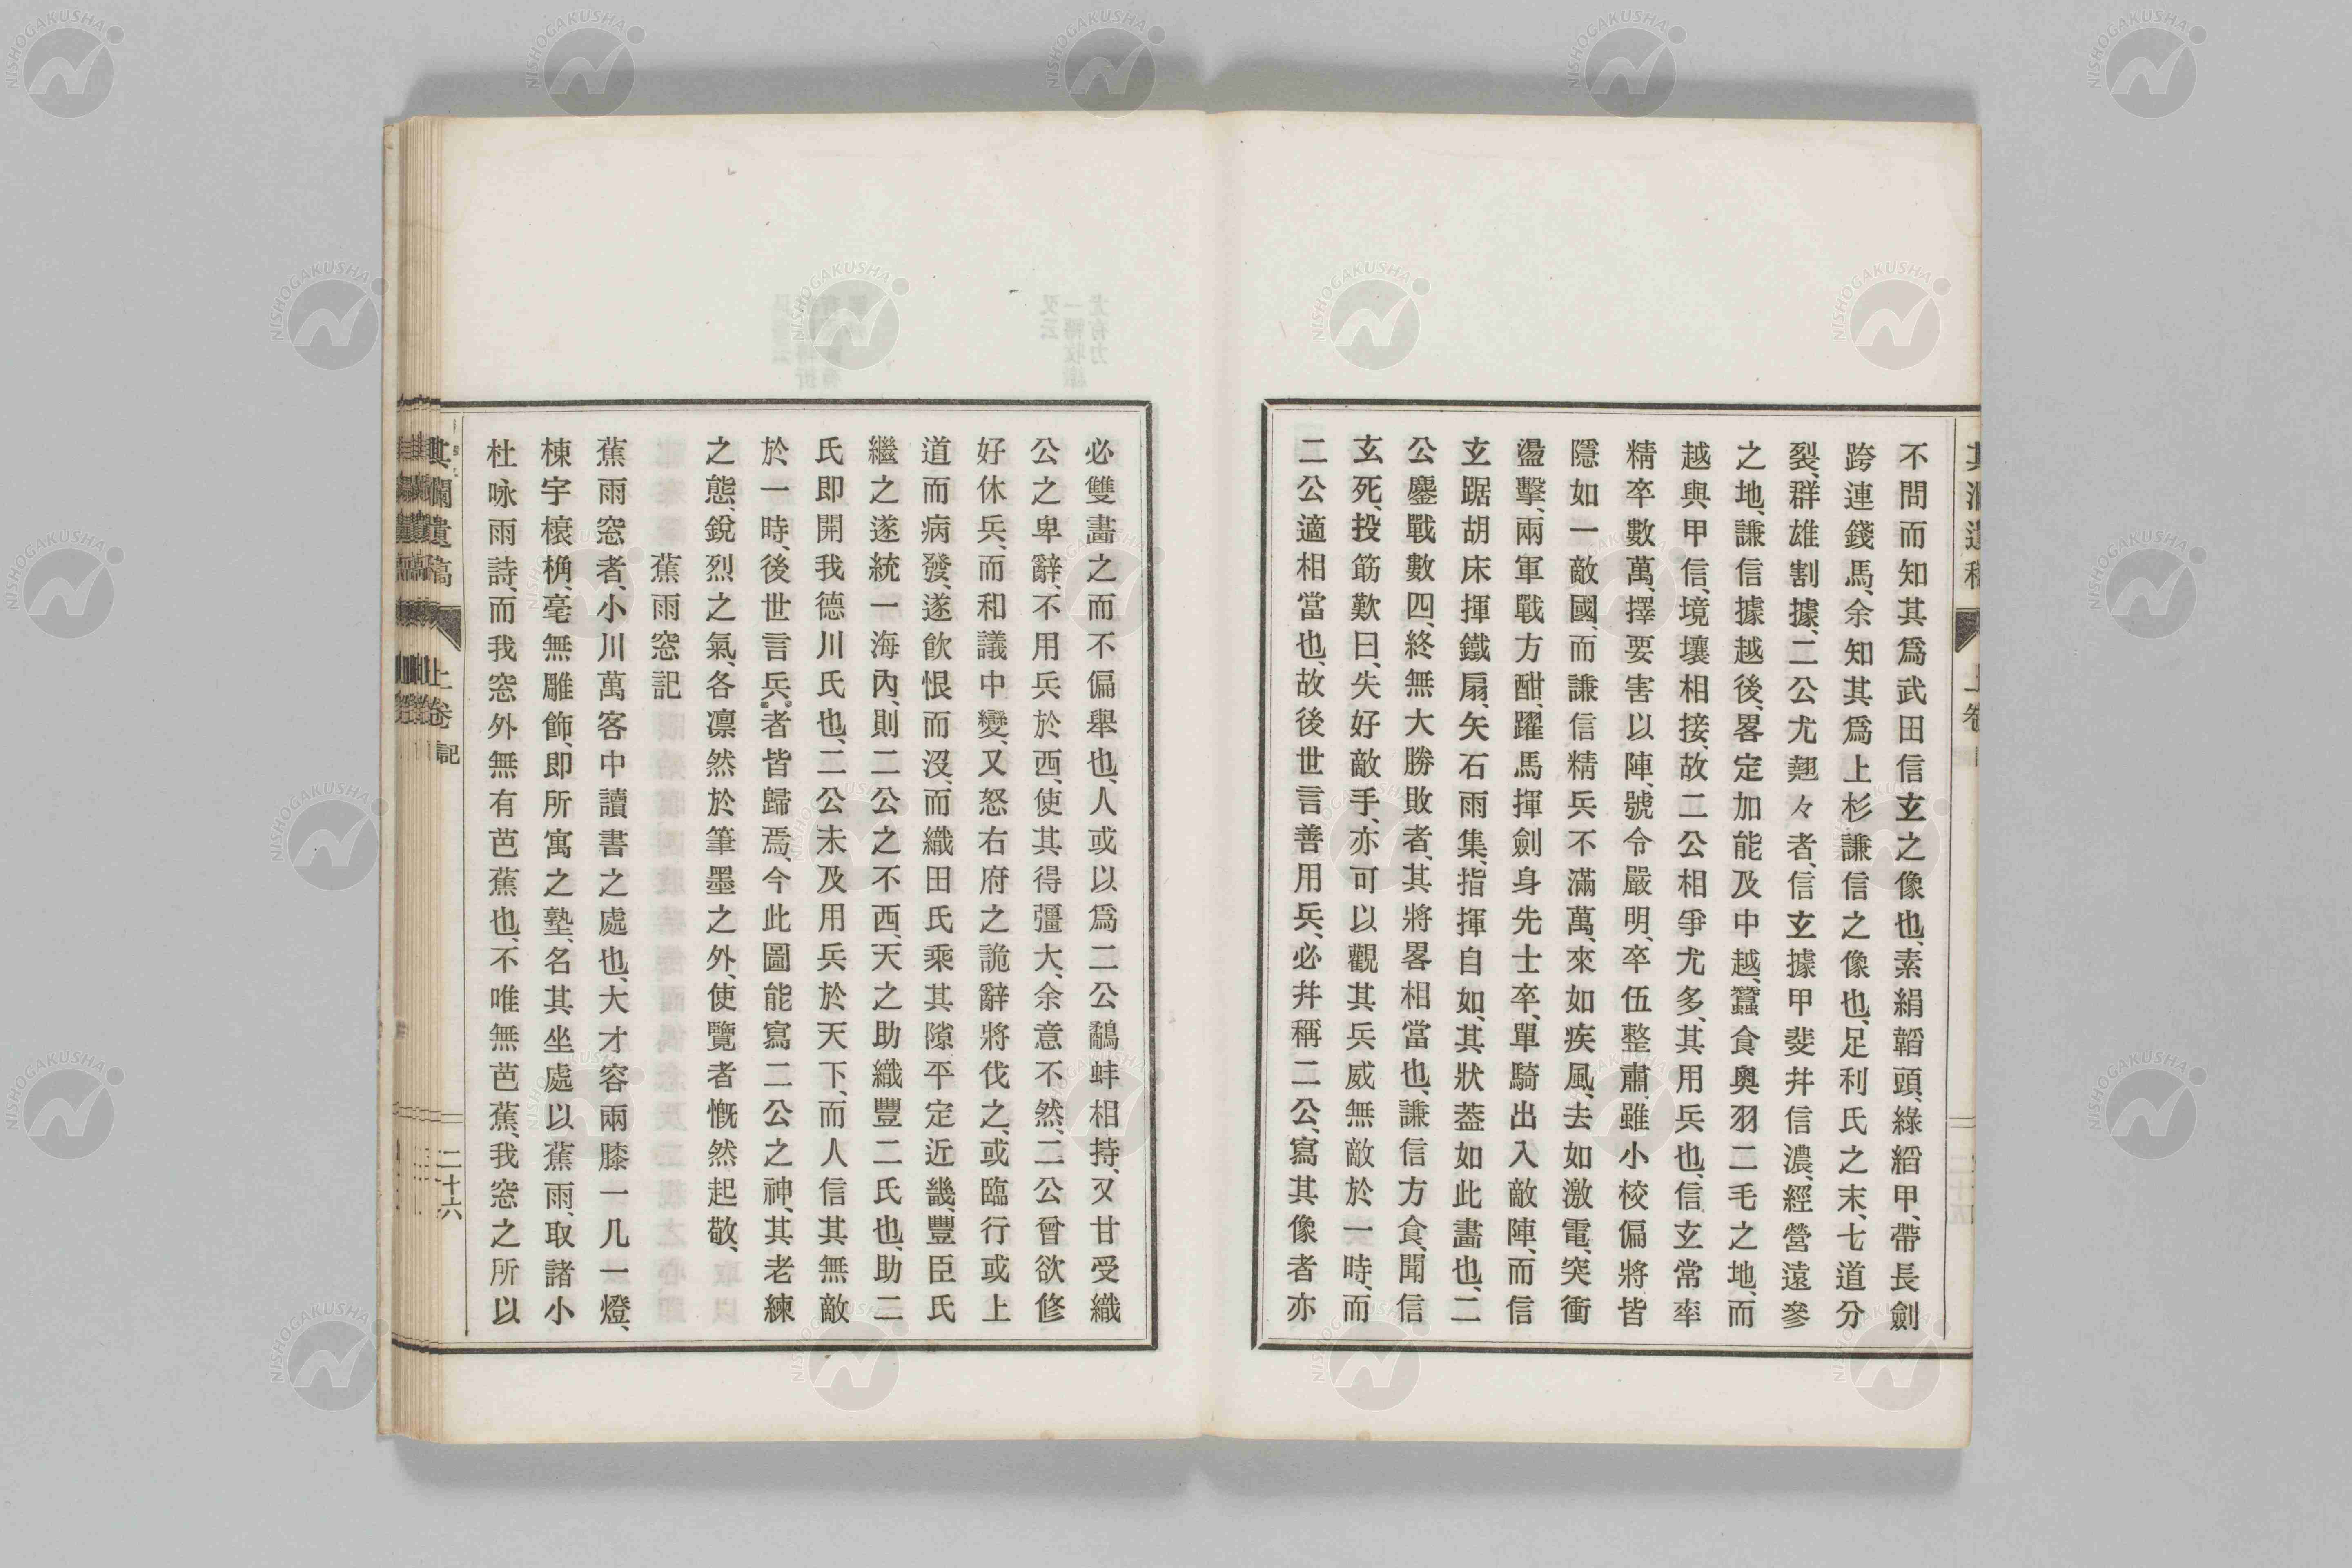 不問而知其爲武田信玄之像也、素絹韜頭、綠縚甲、帶長劍
跨連錢馬、余知其爲上杉謙信之像也、足利氏之末、七道分
裂、群雄割據、二公尤翹々者、信玄據甲斐幷信濃、經營遠參
之地、謙信據越後、畧定加能及中越、蠶食奧羽二毛之地、而
越與甲信、境壤相接、故二公相爭尤多、其用兵也、信玄常率
精卒數萬、擇要害以陣、號令嚴明、卒伍整肅、雖小校偏將皆
隱如一敵國、而謙信精兵不滿萬、來如疾風、去如激電、突衝
盪擊、兩軍戰方酣、躍馬揮劍身先士卒、單騎出入敵陣、而信
玄踞胡床揮鐵扇、矢石雨集、指揮自如、其狀葢如此畵也、二
公鏖戰數四、終無大勝敗者、其將畧相當也、謙信方食、聞信
玄死、投筋歎曰、失好敵手、亦可以觀其兵威無敵於一時、而
二公適相當也、故後世言善用兵、必幷稱二公、寫其像者亦
必雙畵之而不偏擧也、人或以爲二公鷸蚌相持、又甘受織
公之卑辭、不用兵於西、使其得彊大、余意不然、二公曾欲修
好休兵、而和議中變、又怒右府之詭辭將伐之、或臨行或上
道而病發、遂飮恨而沒、而織田氏乘其隙平定近畿、豐臣氏
繼之遂統一海內、則二公之不西、天之助織豐二氏也、助二
氏即開我德川氏也、二公未及用兵於天下、而人信其無敵
於一時、後世言兵者皆歸焉、今此圖能寫二公之神、其老練
之態、銳烈之氣、各凛然於筆墨之外、使覽者慨然起敬、
蕉雨窓記
蕉雨窓者、小川萬客中讀書之處也、大才容兩膝一几一燈、
棟宇榱桷、毫無雕飾、即所寓之塾、名其坐處以蕉雨、取諸小
杜咏雨詩、而我窓外無有芭蕉也、不唯無芭蕉、我窓之所以
遺稿 上卷 記 二十六